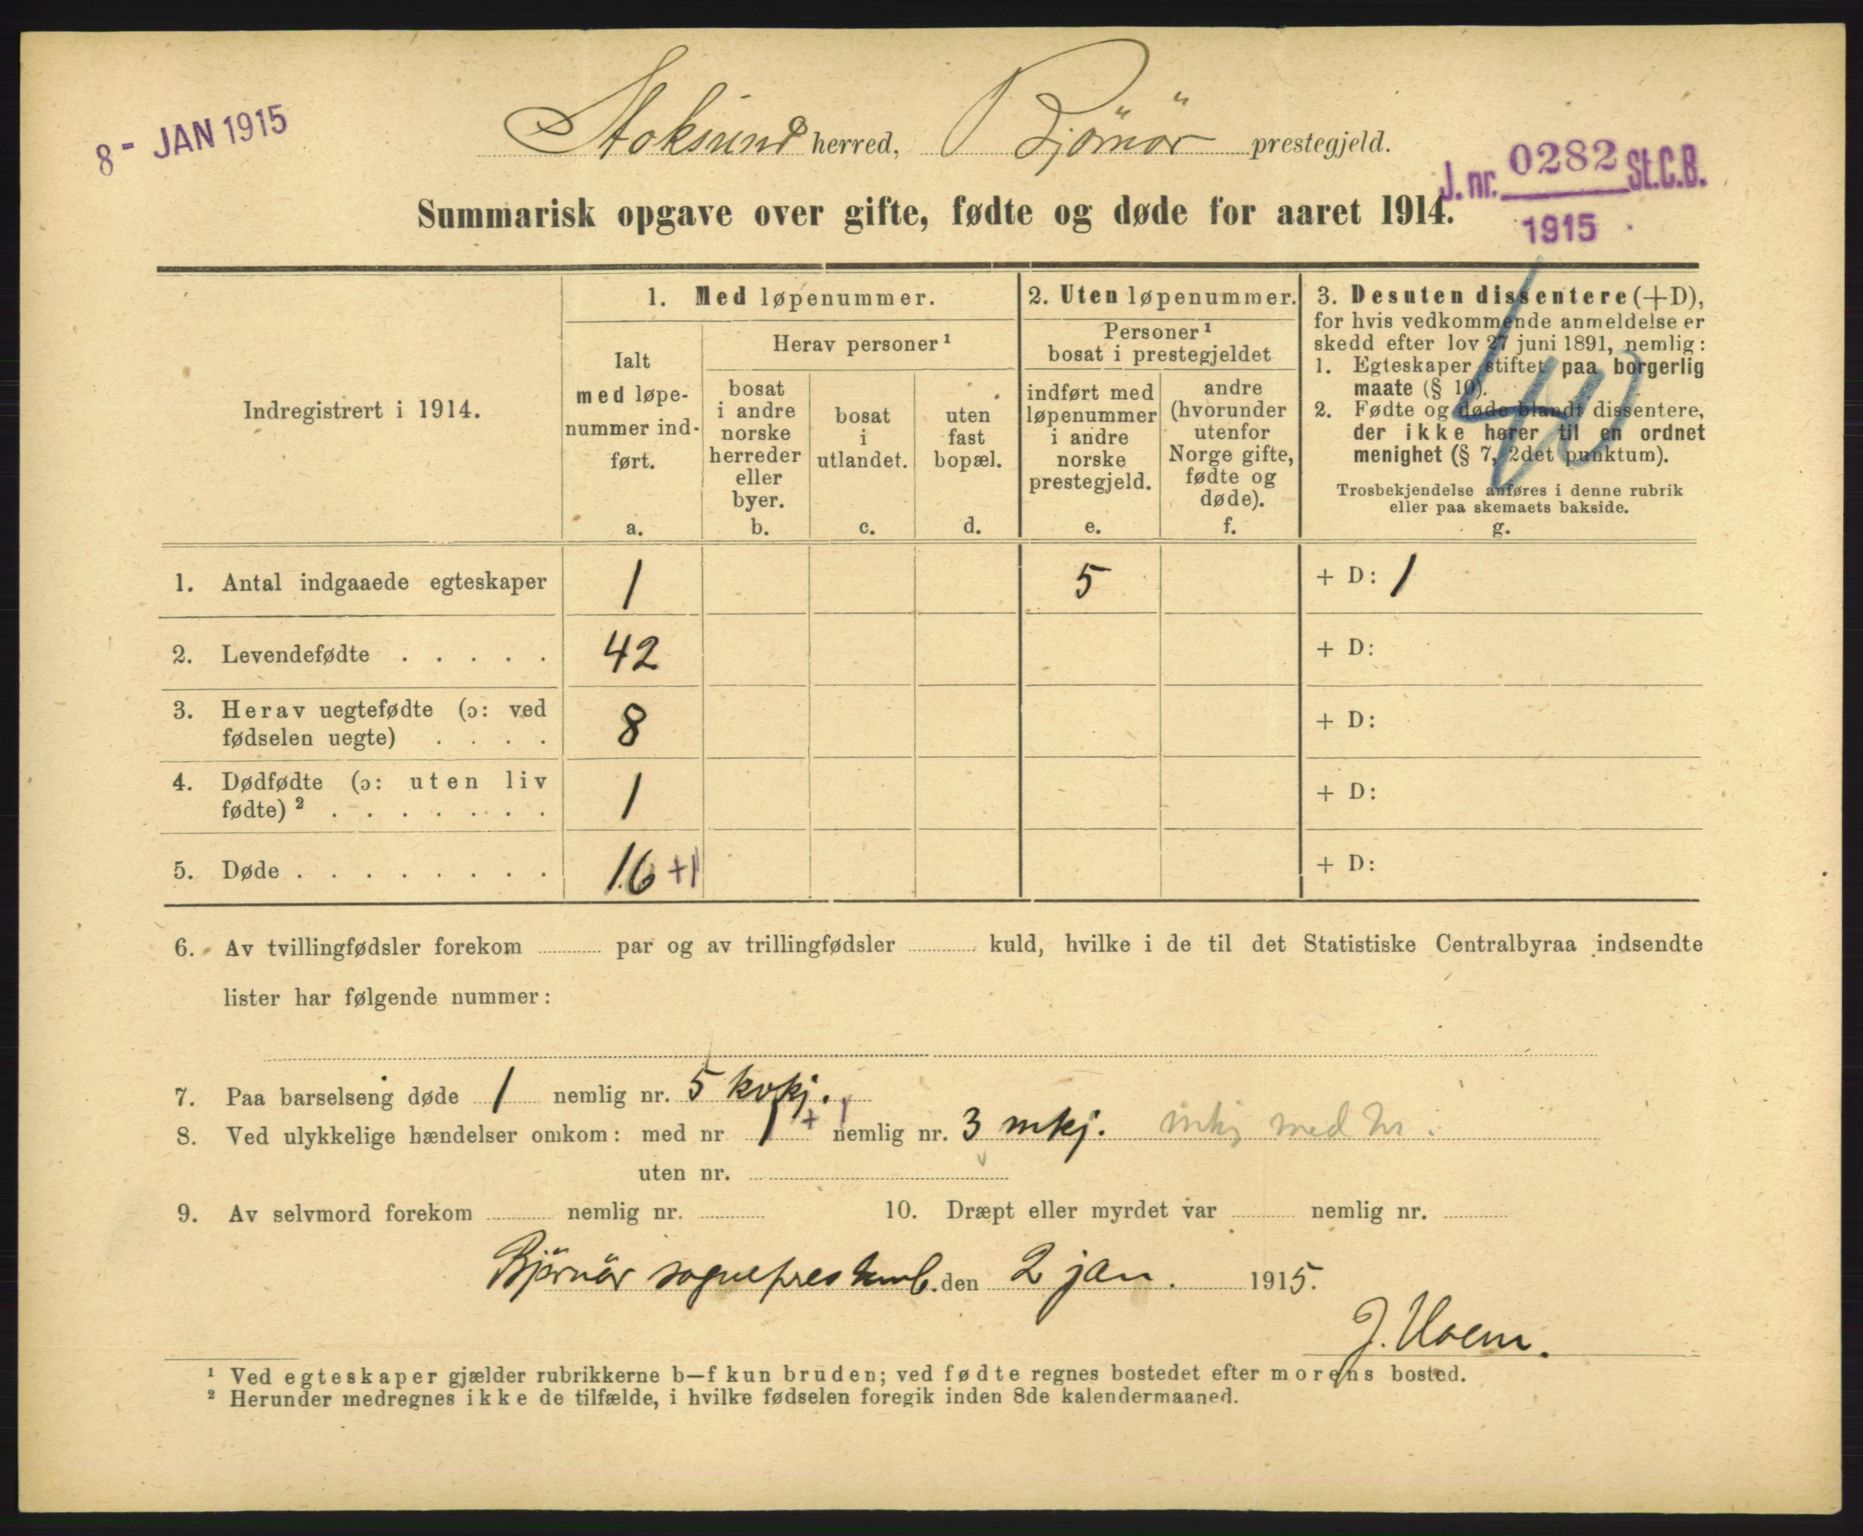 8 - JAN 1915
Stoksund herred, Björnör prestegjeld.
J. nr. 0282 St.C.B.
1915
Summarisk opgave over gifte, fødte og døde for aaret 1914.
40
Indregistrert i 1914.
1. Med løpenummer.
Ialt
med løpe-
nummer ind-
ført.
a.
Herav personer ¹
bosat
i andre
norske
herreder
eller
byer.
b.
bosat
i
utlandet.
c.
uten
fast
bopæl.
d.
2. Uten løpenummer.
Personer ¹
bosat i prestegjeldet
indført med
løpenummer
i andre
norske
prestegjeld.
e.
andre
(hvorunder
utenfor
Norge gifte,
fødte og
døde).
f.
3. Desuten dissentere (+D),
for hvis vedkommende anmeldelse er
skedd efter lov 27 juni 1891, nemlig:
1. Egteskaper stiftet paa borgerlig
maate (§ 10).
2. Fødte og døde blandt dissentere,
der ikke hører til en ordnet
menighet (§ 7, 2det punktum).
Trosbekjendelse anføres i denne rubrik
eller paa skemaets bakside.
g.
1. Antal indgaaede egteskaper 1 5 + D: 1
2. Levendefødte . . . . . 42 + D:
3. Herav uegtefødte (ɔ: ved
fødselen uegte) . . . . 8 + D:
4. Dødfødte (ɔ: uten liv
fødte) ² . . . . . . . 1 + D:
5. Døde . . . . . . . . 16 +1 + D:
6. Av tvillingfødsler forekom par og av trillingfødsler kuld, hvilke i de til det Statistiske Centralbyraa indsendte
lister har følgende nummer:
7. Paa barselseng døde 1 nemlig nr. 5 kvkj.
8. Ved ulykkelige hændelser omkom: med nr 1 + 1 nemlig nr. 3 mkj. mkj med nr.
uten nr.
9. Av selvmord forekom nemlig nr. 10. Dræpt eller myrdet var nemlig nr.
Björnör sogneprestemb. den 2 jan. 1915.
J. Hoem.
¹ Ved egteskaper gjælder rubrikkerne b—f kun bruden; ved fødte regnes bostedet efter morens bosted.
² Herunder medregnes ikke de tilfælde, i hvilke fødselen foregik inden 8de kalendermaaned.